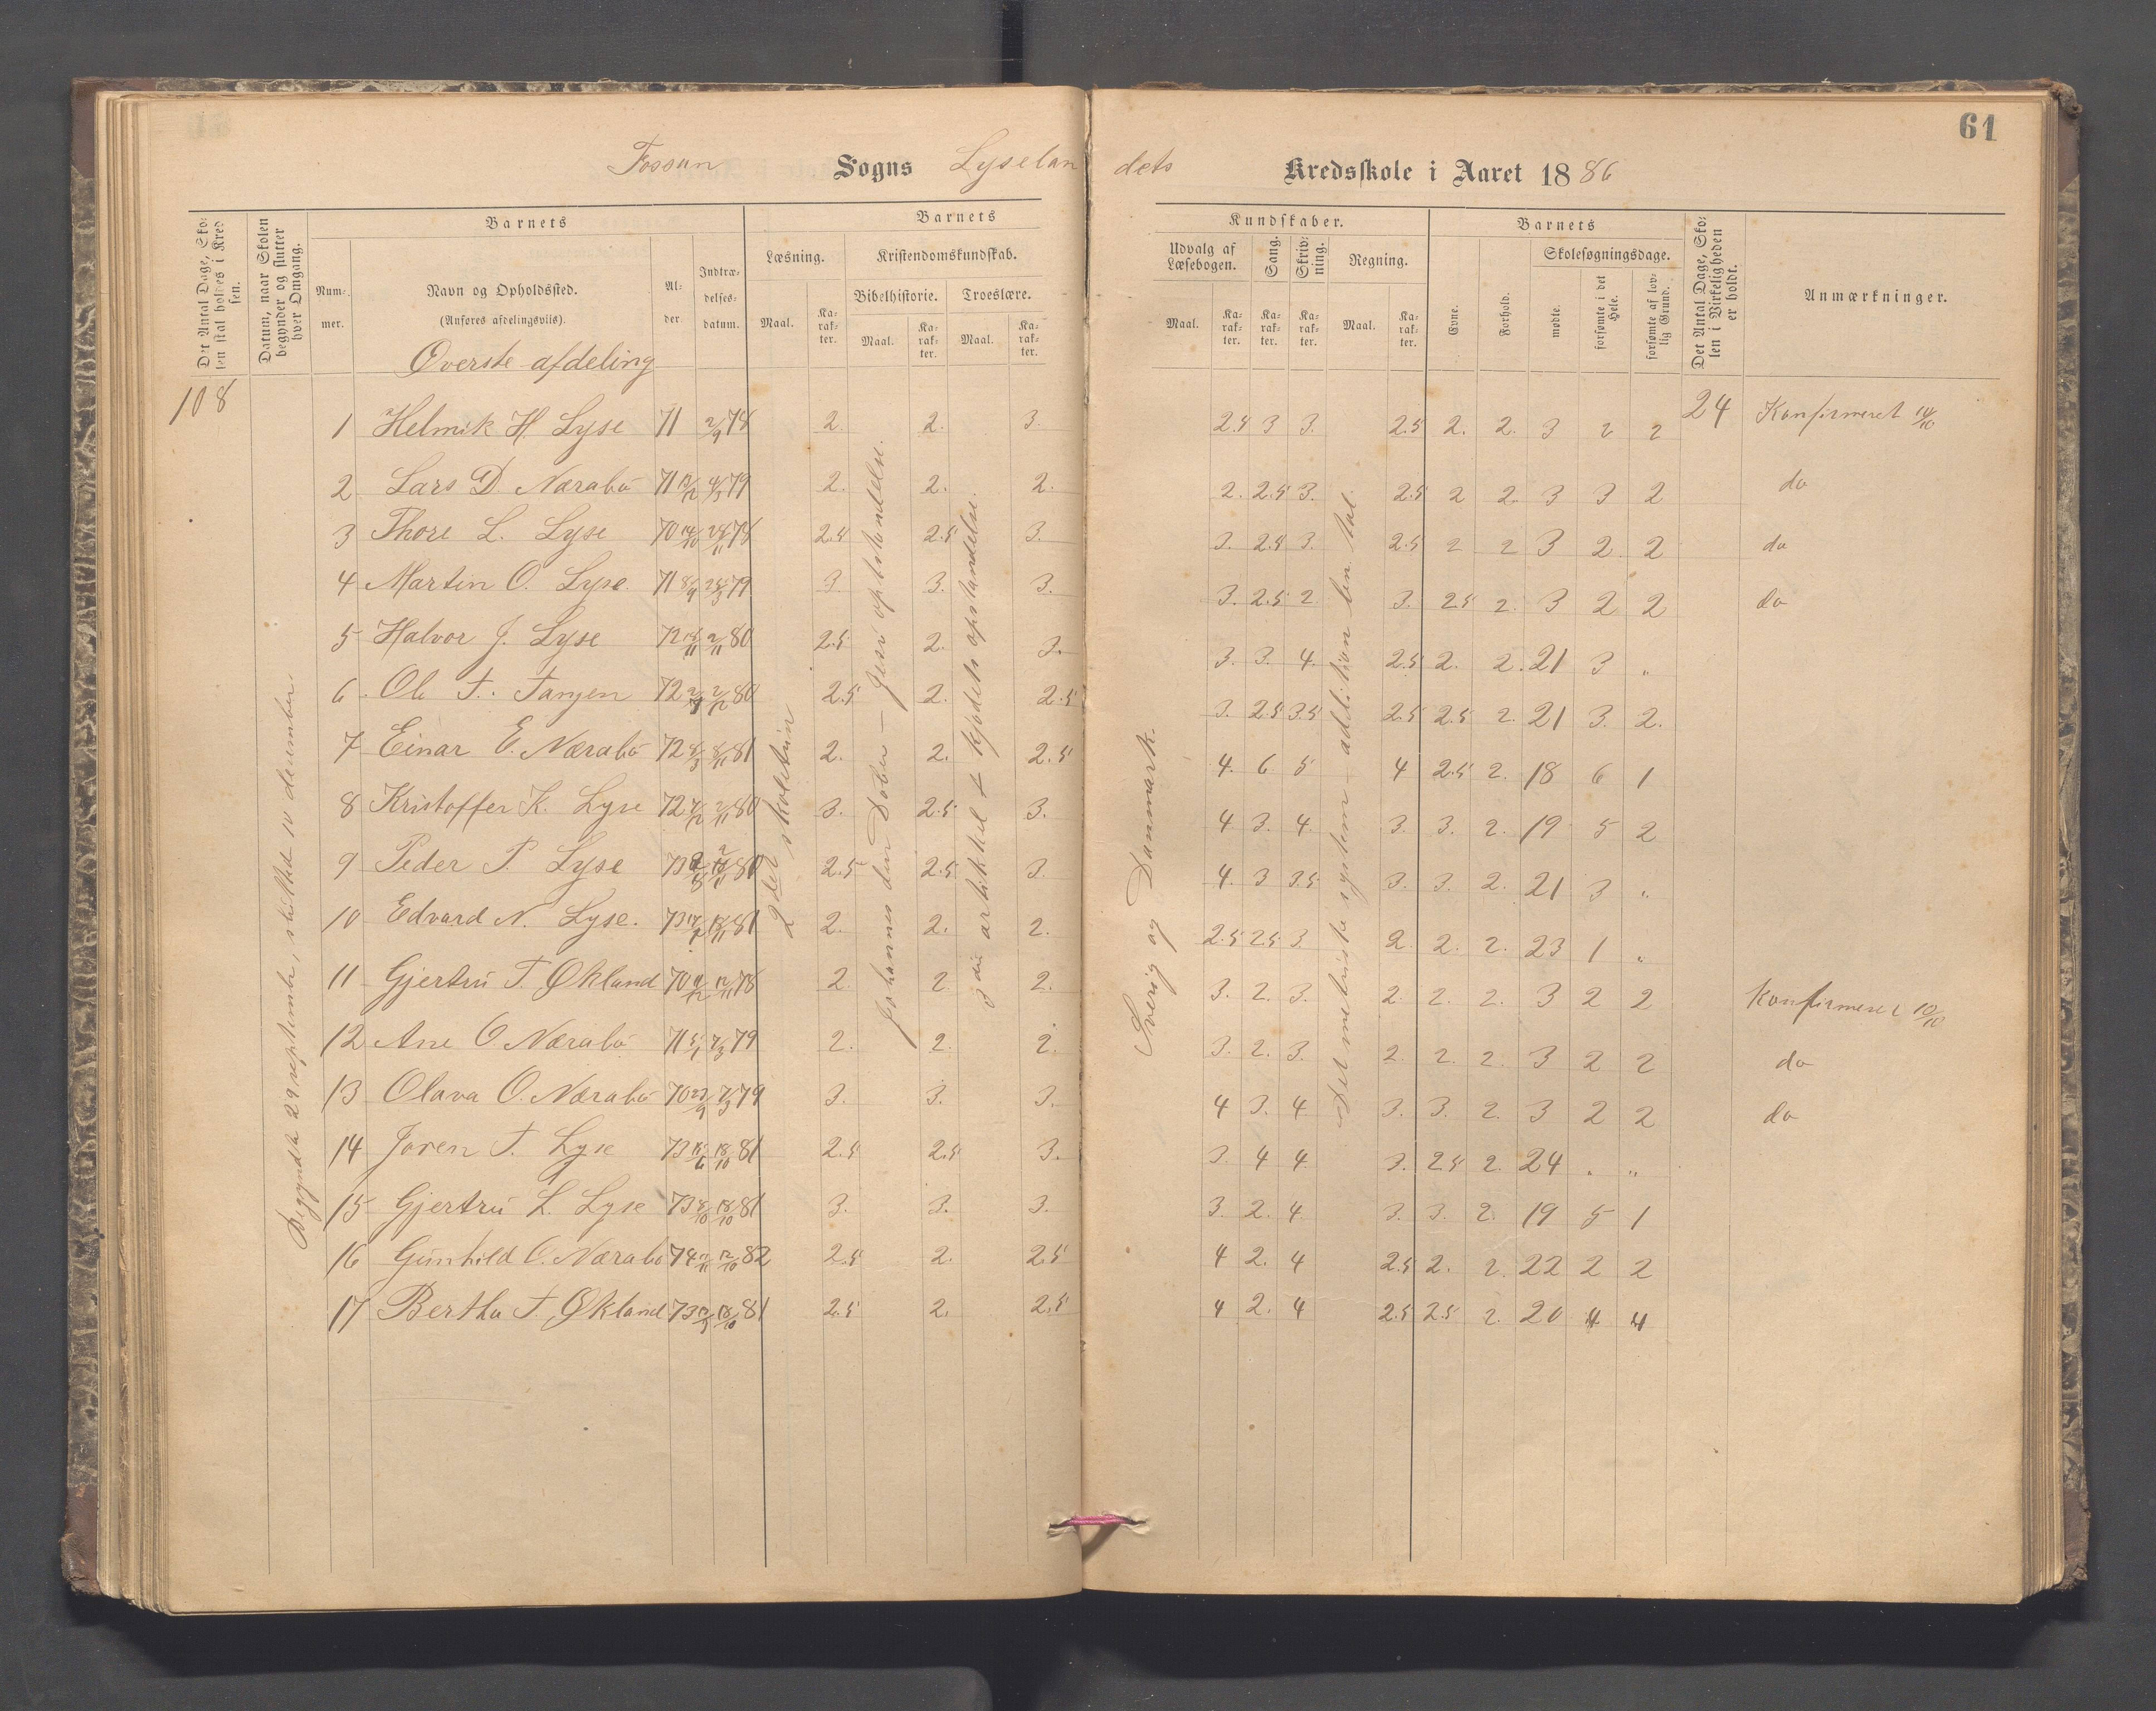 61
Fossan Sogns Lyselan dets Kredsskole i Aaret 1886
Det Antal Dage, Skolen skal holdes i Kredsen.
Datum, naar Skolen begynder og slutter hver Omgang.
Barnets
Nummer.
Navn og Opholdssted.
(Anføres afdelingsvis).
Alder.
Indtrædelsesdatum.
Barnets
Læsning.
Maal.
Karakter.
Kristendomskundskab.
Bibelhistorie.
Maal.
Karakter.
Troeslære.
Maal.
Karakter.
Kundskaber.
Udvalg af Læsebogen.
Maal.
Karakter.
Sang.
Karakter.
Skrivning.
Karakter.
Regning.
Maal.
Karakter.
Barnets
Evne.
Forhold.
Skolesøgningsdage.
mødte.
forsømte i det Hele.
forsømte af lovlig Grund.
Det Antal Dage, Skolen i Virkeligheden er holdt.
Anmærkninger.
Øverste afdeling
108
Begyndte 29 september, sluttede 10 december
2det skoletrin
Johannes den Døber – Jesu opstandelse.
3die artikkel f kjødets opstandelse.
Sverig og Danmark.
Det metriske system – addition ben. tal.
1 Helmik H. Lyse 71 2/9 78 2. 2. 3. 2.5 3 3. 2.5 2. 2. 3 2 2 24 Konfirmeret 10/10
2 Lars D. Nærabø 71 4/3 79 2. 2. 2. 2. 2.5 3. 2.5 2 2. 3 3 2 do
3 Thore L. Lyse 70 78 2.5 2.5 3. 3. 2.5 3. 2.5 2 2 3 2 2 do
4 Martin O. Lyse. 71 79 3. 3. 3. 3. 2.5 2. 3. 2.5 2. 3 2 2 do
5 Halvor J. Lyse 72 2/11 80 2.5 2. 3. 3. 3. 4. 2.5 2. 2. 21 3 „
6 Ole T. Tanjen 72 80 2.5 2. 2.5 3. 2.5 3.5 2.5 2.5 2. 21 3. 2.
7 Einar E. Nærabø 72 8/11 81 2. 2. 2.5 4. 6 5 4 2.5 2. 18 6 1
8 Kristoffer K. Lyse 72 2/11 80 3. 2.5 3. 4 3. 4. 3. 3. 2. 19 5 2
9 Peder P. Lyse 73 80 2.5 2.5 3. 4. 3 3.5 3. 3. 2. 21 3 „
10 Edvard N. Lyse. 73 18/11 81 2. 2. 2. 2.5 2.5 3 2. 2. 2. 23 1 „
11 Gjertru T. Økland 70 12/11 78 2. 2. 2. 3. 2. 3. 2. 2. 2. 3 2 2 Konfirmeret 10/10
12 Ane O. Nærabø 71 7/3 79 2. 2. 2. 3. 2. 3. 2. 2. 2. 3 2 2 do
13 Olava O. Nærabø 70 7/3 79 3. 3. 3. 4 3. 4 3. 3. 2. 3 2 2 do
14 Joren T. Lyse 73 18/10 81 2.5 2.5 3. 3. 4 4 3. 2.5 2. 24 „ „
15 Gjertru L. Lyse 73 18/10 81 3. 3. 3. 3. 2. 4. 3. 3. 2. 19 5 1
16 Gunhild O. Nærabø 74 12/10 82 2.5 2. 2.5 4 2. 4 2.5 2. 2. 22 2 2
17 Bertha T. Økland 73 18/10 81 2.5 2. 2.5 4 2. 4 2.5 2.5 2. 20 4 4